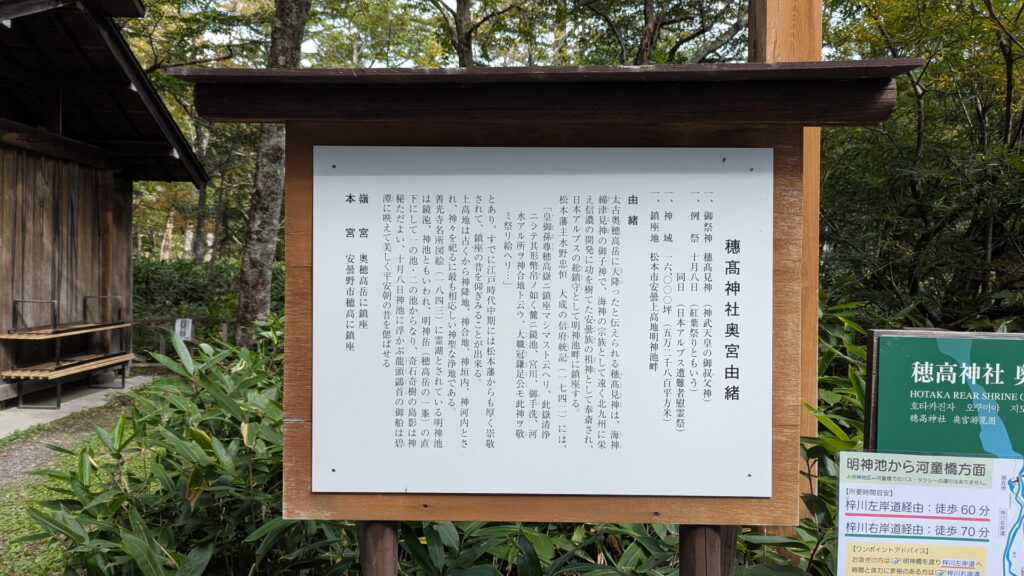 穂髙神社奥宮由緒
一、御祭神　穂高見神　（神武天皇の御叔父神）
一、例　祭　十月八日　（紅葉祭りともいう）
同日　（日本アルプス遭難者慰霊祭）
一、神　域　一六、〇〇〇坪　（五万二千八百平方米）
一、鎮座地　松本市安曇上高地明神池畔
由緒
太古奥穂高岳に天降ったと伝えられる穂高見神は、海神
綿津見神の御子神で、海神の宗族として遠く北九州に栄
え信濃の開発に功を樹てた安曇族の祖神として奉斎され、
日本アルプスの総鎮守として明神池畔に鎮座する。
松本藩主水野忠恒　大成の信府統記（一七四二）には、
「皇御孫尊穂高嶽ニ鎮座マシマスト云ヘリ、此嶽清浄
ニシテ其形幣帛ノ如ク麓ニ鏡池、宮川、御手洗、河
水アル所ヲ神合地ト云ウ、大職冠鎌足公モ此神ヲ敬
ミ祭リ給ヘリ…」
とあり、すでに江戸時代中期には松本藩からも厚く崇敬
されて、鎮座の昔を仰ぎみることが出来る。
上高地は古くから神降地、神合地、神垣内、神河内とさ
れ、神々を祀るに最も相応しい神聖な浄地である。
善光寺名所図絵（八四三）に霊湖とされている明神池
は鏡池、神池ともいわれ、明神岳（穂高岳の一峯）の直
下にして一の池・二の池からなり、奇石奇樹の島影は神
秘ただよい、十月八日神池に浮かぶ龍頭鷁首の御船は碧
潭に映えて美しく平安朝の昔を偲ばせる
嶺　宮　奥穂高岳に鎮座
本　宮　安曇野市穂高に鎮座
穂高神社 奥
HOTAKA REAR SHRINE
호타카진자　오쿠미야
穂高神社　奥宮游览图
明神池から河童橋方面
【所要時間目安】
梓川左岸道経由：徒歩 60 分
梓川右岸道経由：徒歩 70 分
【ワンポイントアドバイス】
お急ぎの方は 明神橋を渡り梓川左岸道へ
時間と体力に余裕のある方は 梓川右岸道